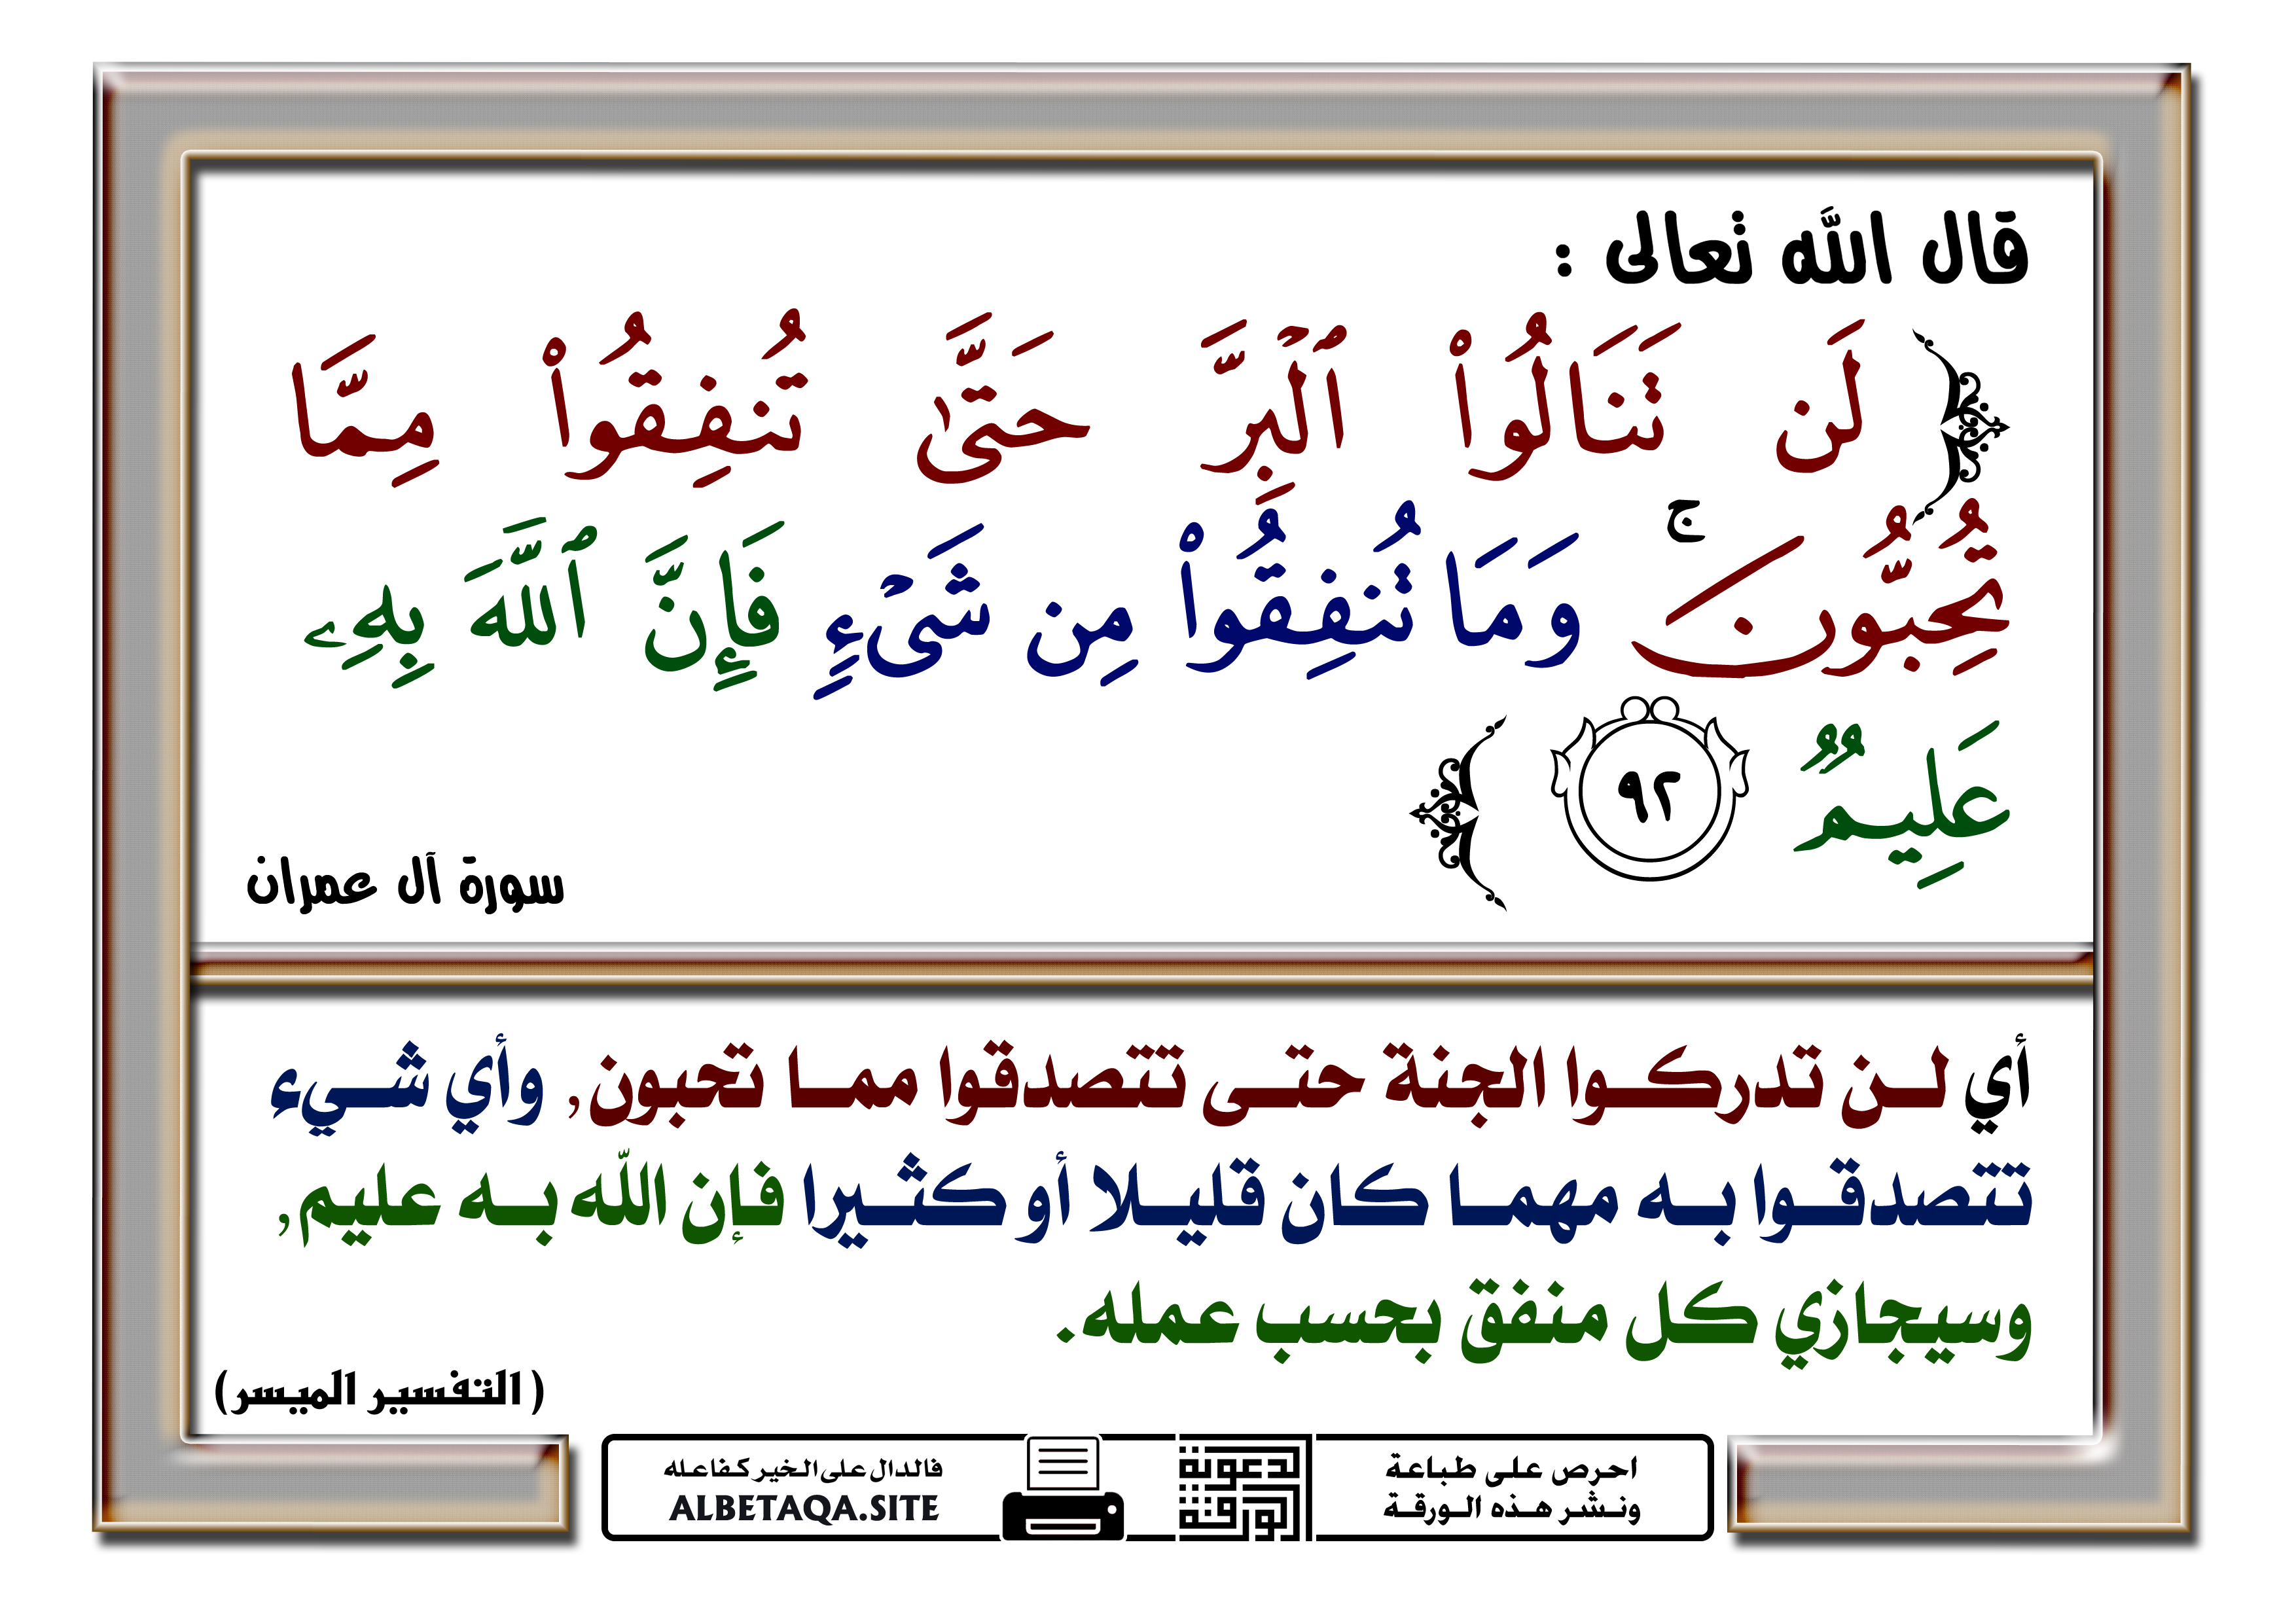 قال الله تعالى :
﴿ لَن تَنَالُوا۟ ٱلْبِرَّ حَتَّىٰ تُنفِقُوا۟ مِمَّا
تُحِبُّونَ ۚ وَمَا تُنفِقُوا۟ مِن شَىْءٍ فَإِنَّ ٱللَّهَ بِهِۦ
عَلِيمٌ ٩٢ ﴾
سورة آل عمران
أي لن تدركوا الجنة حتى تتصدقوا مما تحبون, وأي شيء
تتصدقوا به مهما كان قليلا أو كثيرا فإن الله به عليم,
وسيجازي كل منفق بحسب عمله.
( التفسير الميسر)
احرص على طباعة
ونشر هذه الورقة
الدعوية
الورقة
فالدال على الخير كفاعله
ALBETAQA.SITE